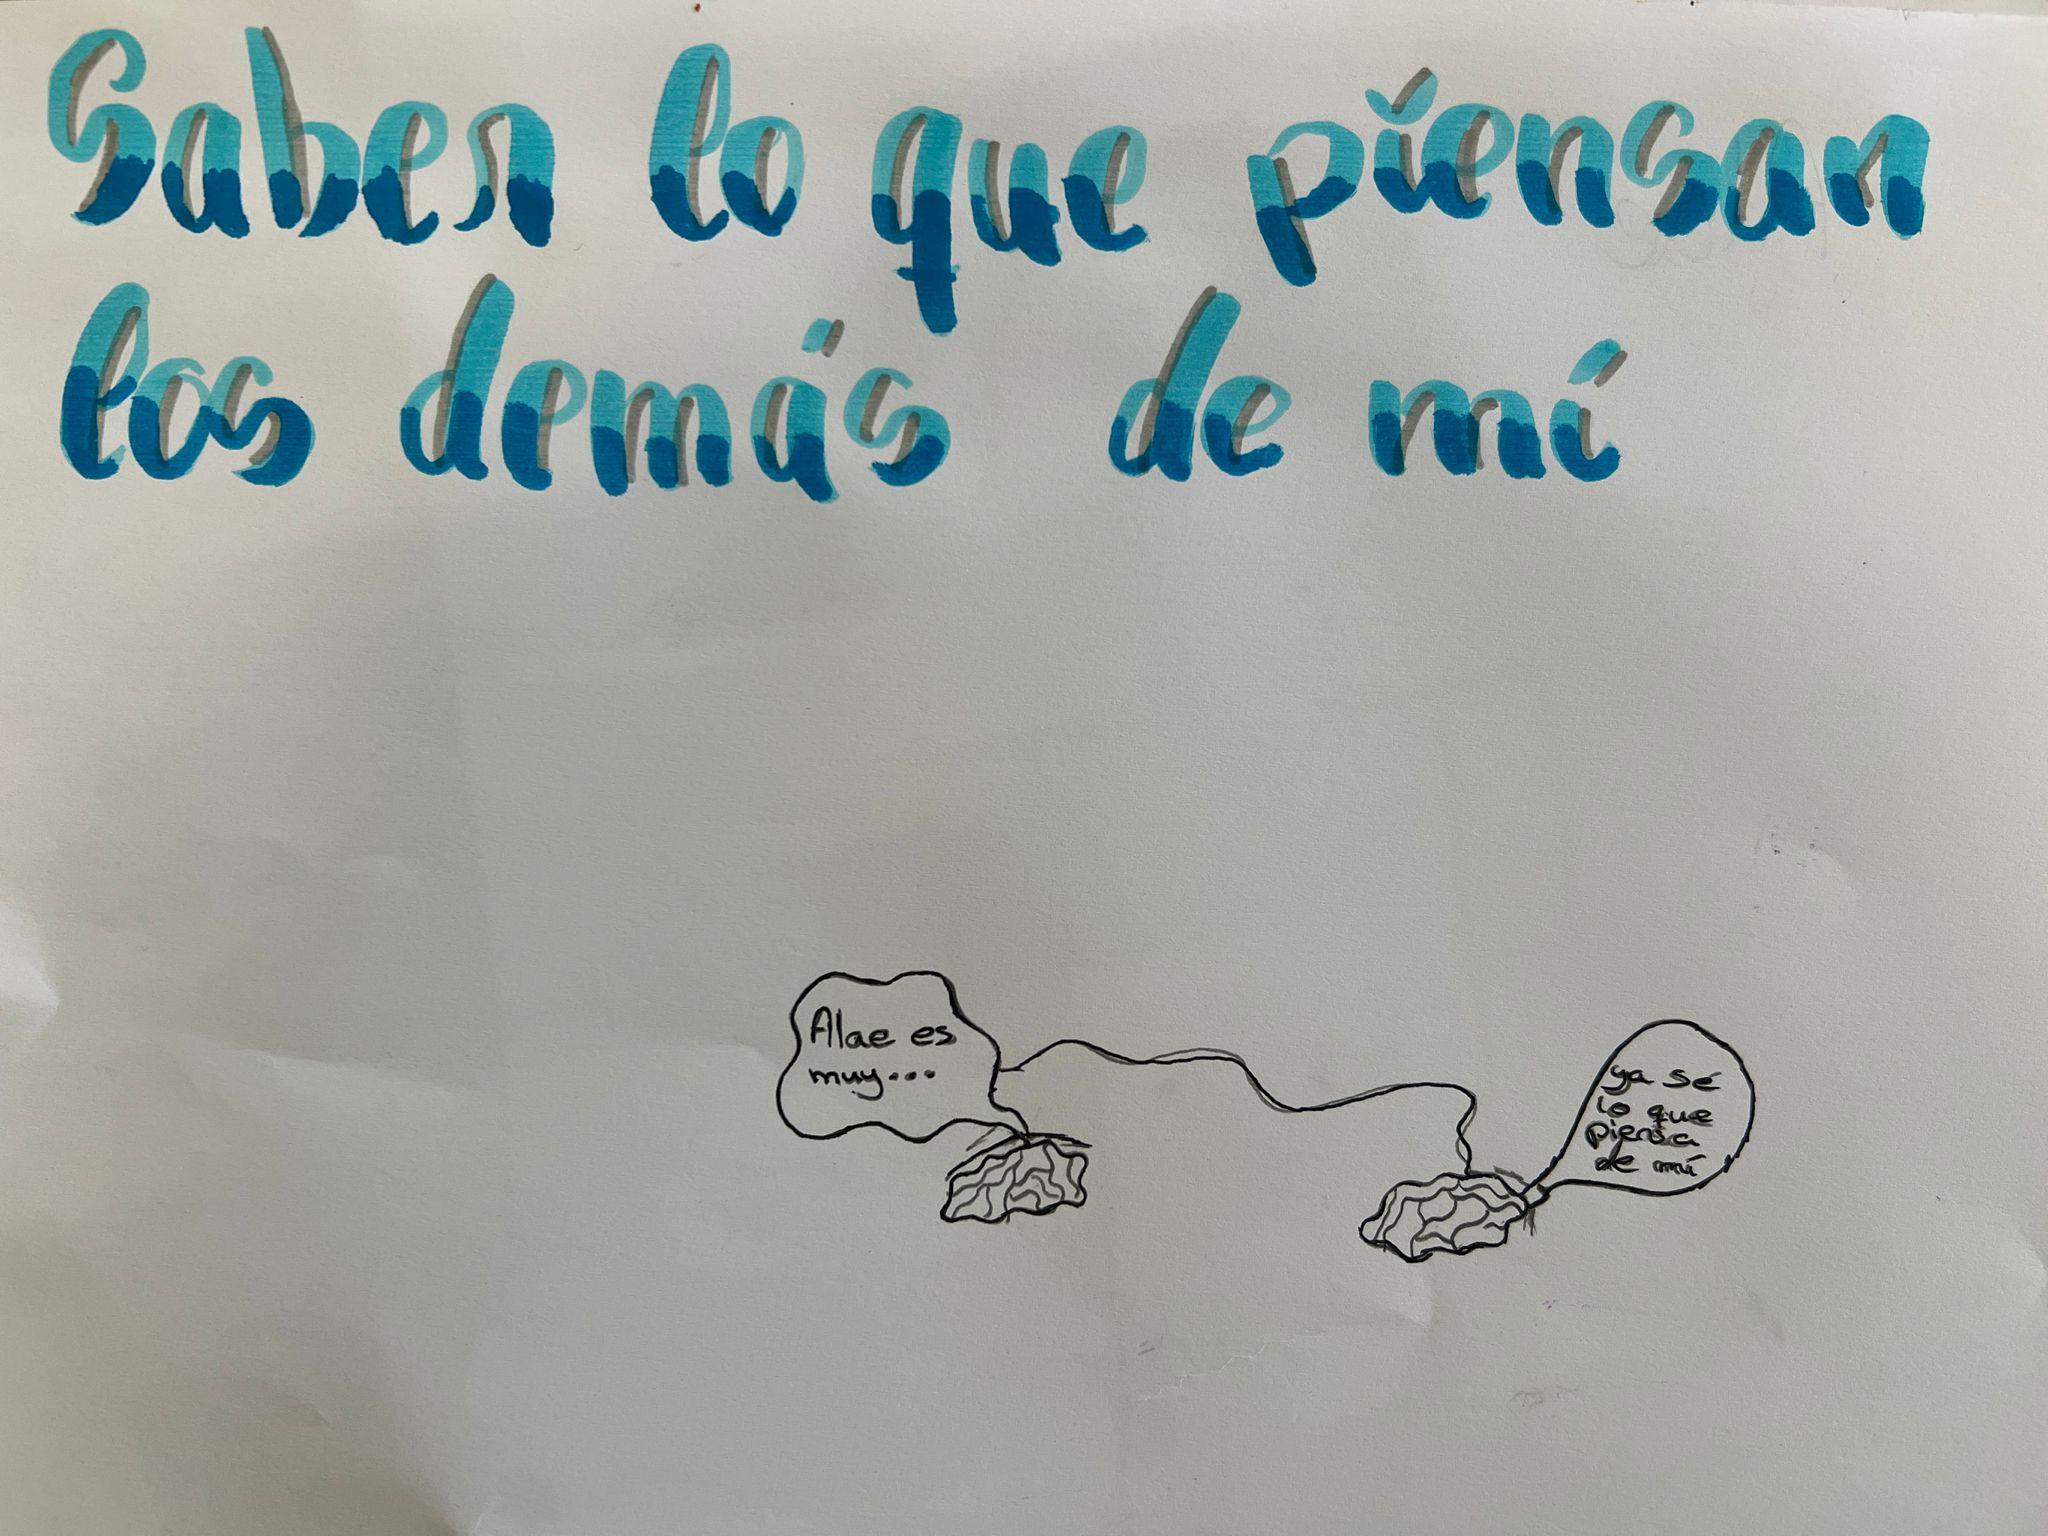 Saber lo que piensan
los demás de mí
Alae es
muy...
ya sé
lo que
piensa
de mí